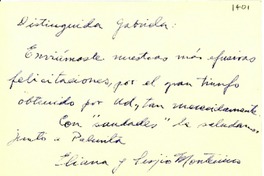 1401
Distinguida Gabriela:
Enviámosle nuestras más efusivas
felicitaciones, por el gran triunfo
obtenido por Ud, tan merecidamente.
Con "saudades" la saludamos
junto a Palmita
Eliana y Sergio Montecinos